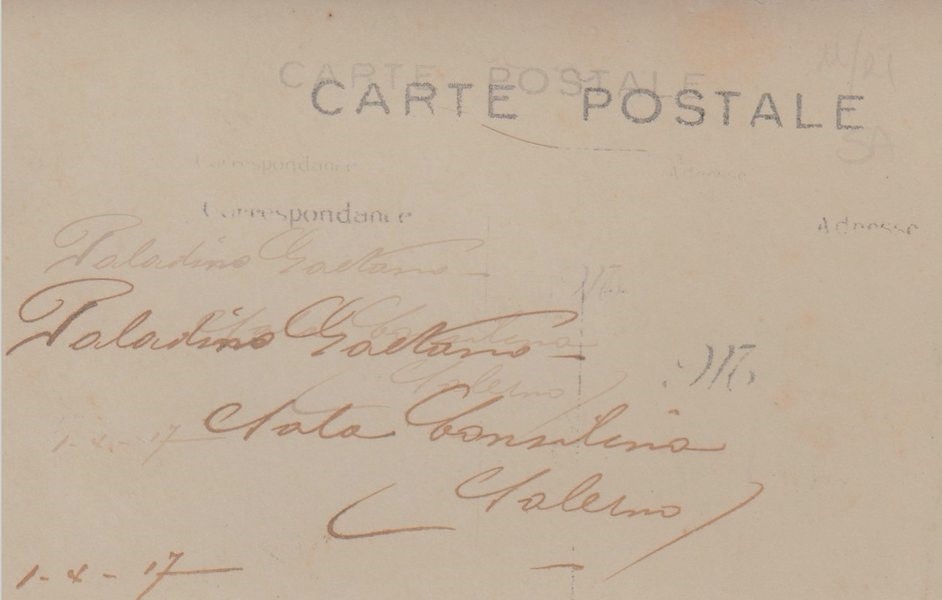 CARTE POSTALE
Correspondance
Adresse
Paladino Gaetano -
Sala Consilina
(Salerno)
1-X-17